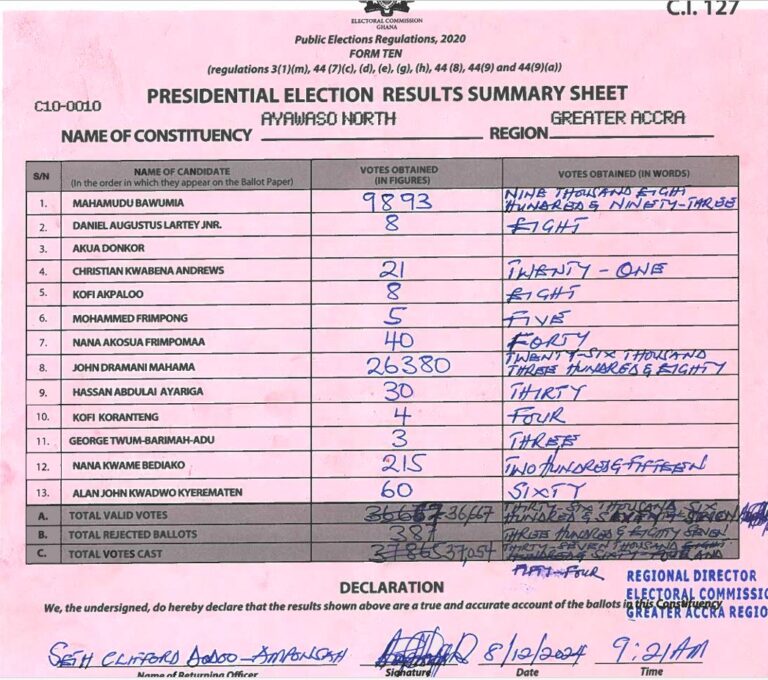 C.I. 127
ELECTORAL COMMISSION
GHANA
Public Elections Regulations, 2020
FORM TEN
(regulations 3(1)(m), 44 (7)(c), (d), (e), (g), (h), 44 (8), 44(9) and 44(9)(a))
PRESIDENTIAL ELECTION RESULTS SUMMARY SHEET
C10-0010
NAME OF CONSTITUENCY AYAWASO NORTH REGION GREATER ACCRA
S/N NAME OF CANDIDATE (In the order in which they appear on the Ballot Paper) VOTES OBTAINED (IN FIGURES) VOTES OBTAINED (IN WORDS)
1. MAHAMUDU BAWUMIA 9893 NINE THOUSAND EIGHT HUNDRED & NINETY-THREE
2. DANIEL AUGUSTUS LARTEY JNR. 8 EIGHT
3. AKUA DONKOR
4. CHRISTIAN KWABENA ANDREWS 21 TWENTY-ONE
5. KOFI AKPALOO 8 EIGHT
6. MOHAMMED FRIMPONG 5 FIVE
7. NANA AKOSUA FRIMPOMAA 40 FORTY
8. JOHN DRAMANI MAHAMA 26380 TWENTY-SIX THOUSAND THREE HUNDRED & EIGHTY
9. HASSAN ABDULAI AYARIGA 30 THIRTY
10. KOFI KORANTENG 4 FOUR
11. GEORGE TWUM-BARIMAH-ADU 3 THREE
12. NANA KWAME BEDIAKO 215 TWO HUNDRED & FIFTEEN
13. ALAN JOHN KWADWO KYEREMATEN 60 SIXTY
A. TOTAL VALID VOTES 36,667 THIRTY-SIX THOUSAND SIX HUNDRED & SIXTY-SEVEN
B. TOTAL REJECTED BALLOTS 387 THREE HUNDRED & EIGHTY SEVEN
C. TOTAL VOTES CAST 37865 37,054 THIRTY-SEVEN THOUSAND AND
FIFTY-FOUR
DECLARATION
REGIONAL DIRECTOR
ELECTORAL COMMISSIO
GREATER ACCRA REGIO
We, the undersigned, do hereby declare that the results shown above are a true and accurate account of the ballots in this Constituency
SETH CLIFFORD 8/12/2024 9:21AM
Name of Returning Officer Signature Date Time